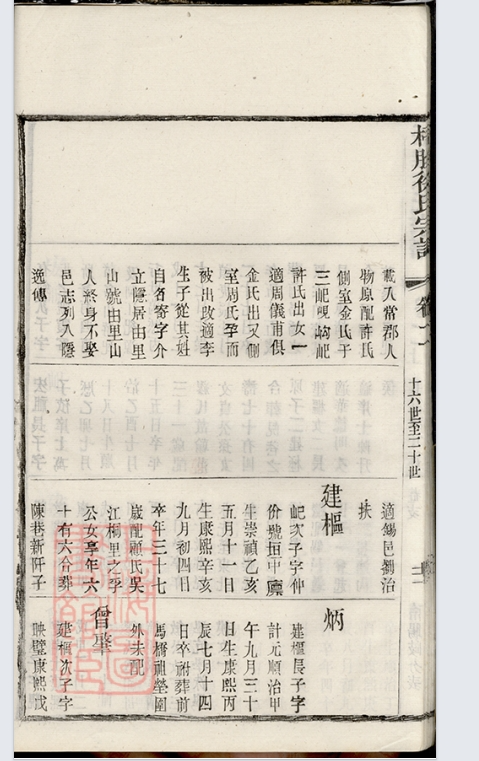 徐氏宗譜
卷
十六世至二十世
載入常郡人
物原配許氏
側室金氏于
三屺峴岣屺
許氏出女一
適周儀甫俱
金氏出又側
室周氏孕而
被出改適李
生子從其姓
自名寄字介
立隱居由里
山號由里山
人終身不娶
邑志列入隱
逸傳
適錫邑劉治
扶
建樞
屺次子字仲
份號垣中廪
生崇禎乙亥
五月十一日
生康熙辛亥
九月初四日
卒年三十七
歲配顧氏吳
江桐里之李
公女享年六
十有六合葬
陳巷新阡子
炳
建樞長子字
計元順治甲
午九月三十
日生康熙丙
辰七月十四
日卒祔葬前
馬橋祖塋圍
外未配
曾肇
建樞次子字
映璧康熙戊